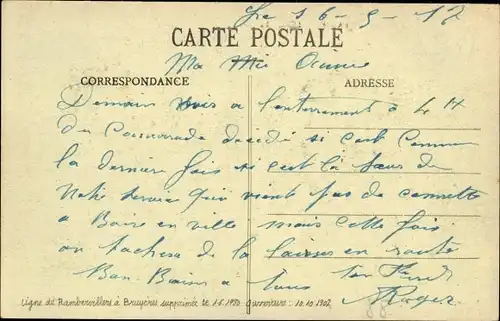 Le 16-9-17
CARTE POSTALE
Ma Mie
CORRESPONDANCE
ADRESSE
Demain a l'enterrement a 4 H
du Camarade décidé si c'est comme
la dernière fois si c'est la sœur de
Notre qui vient pas de
a Boire en ville mais cette fois
on tachera de la laisser en route
Bon Baiser a tous ton
Roger
Ligne de Rambervillers à Bruyères supprimée le 1.6.1980. Ouverture : 10.10.1907.